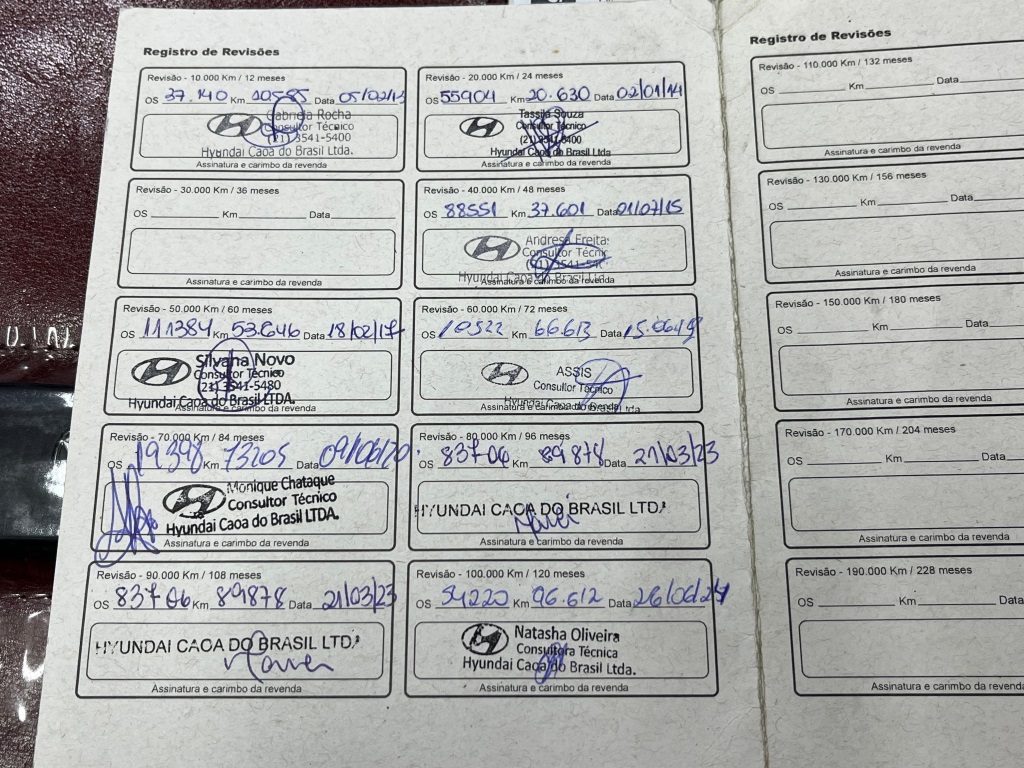 Registro de Revisões
Revisão - 10.000 Km / 12 meses
OS 37.140 Km 10585 Data 05/02/13
Gabriela Rocha
Consultor Técnico
(21) 3541-5400
Hyundai Caoa do Brasil Ltda.
Assinatura e carimbo da revenda
Revisão - 20.000 Km / 24 meses
OS 55904 Km 20.630 Data 02/01/14
Tassila Souza
Consultor Técnico
(21) 3541-5400
Hyundai Caoa do Brasil Ltda
Assinatura e carimbo da revenda
Revisão - 30.000 Km / 36 meses
OS Km Data
Assinatura e carimbo da revenda
Revisão - 40.000 Km / 48 meses
OS 88551 Km 37.601 Data 01/07/15
Andresa Freita
Consultor Técnic
Hyundai Caoa do Brasil Ltda
Assinatura e carimbo da revenda
Revisão - 50.000 Km / 60 meses
OS 111384 Km 53.646 Data 18/02/17
Silvana Novo
Consultor Técnico
(21) 3541-5480
Hyundai Caoa do Brasil LTDA.
Assinatura e carimbo da revenda
Revisão - 60.000 Km / 72 meses
OS 10522 Km 66.613 Data
ASSIS
Consultor Técnico
Hyundai Caoa do Brasil Ltda
Assinatura e carimbo da revenda
Revisão - 70.000 Km / 84 meses
OS 19398 Km 73205 Data 09/06/20
Monique Chataque
Consultor Técnico
Hyundai Caoa do Brasil LTDA.
Assinatura e carimbo da revenda
Revisão - 80.000 Km / 96 meses
OS 83706 Km 89878 Data 21/03/23
HYUNDAI CAOA DO BRASIL LTDA
Assinatura e carimbo da revenda
Revisão - 90.000 Km / 108 meses
OS 83706 Km 89878 Data 21/03/23
HYUNDAI CAOA DO BRASIL LTDA
Assinatura e carimbo da revenda
Revisão - 100.000 Km / 120 meses
OS 54220 Km 96.612 Data 26/06/24
Natasha Oliveira
Consultora Técnica
Hyundai Caoa do Brasil Ltda.
Assinatura e carimbo da revenda
Registro de Revisões
Revisão - 110.000 Km / 132 meses
OS Km Data
Assinatura e carimbo da revenda
Revisão - 130.000 Km / 156 meses
OS Km Data
Assinatura e carimbo da revenda
Revisão - 150.000 Km / 180 meses
OS Km Data
Assinatura e carimbo da revenda
Revisão - 170.000 Km / 204 meses
OS Km Data
Assinatura e carimbo da revenda
Revisão - 190.000 Km / 228 meses
OS Km Data
Assinatura e carimbo da revenda